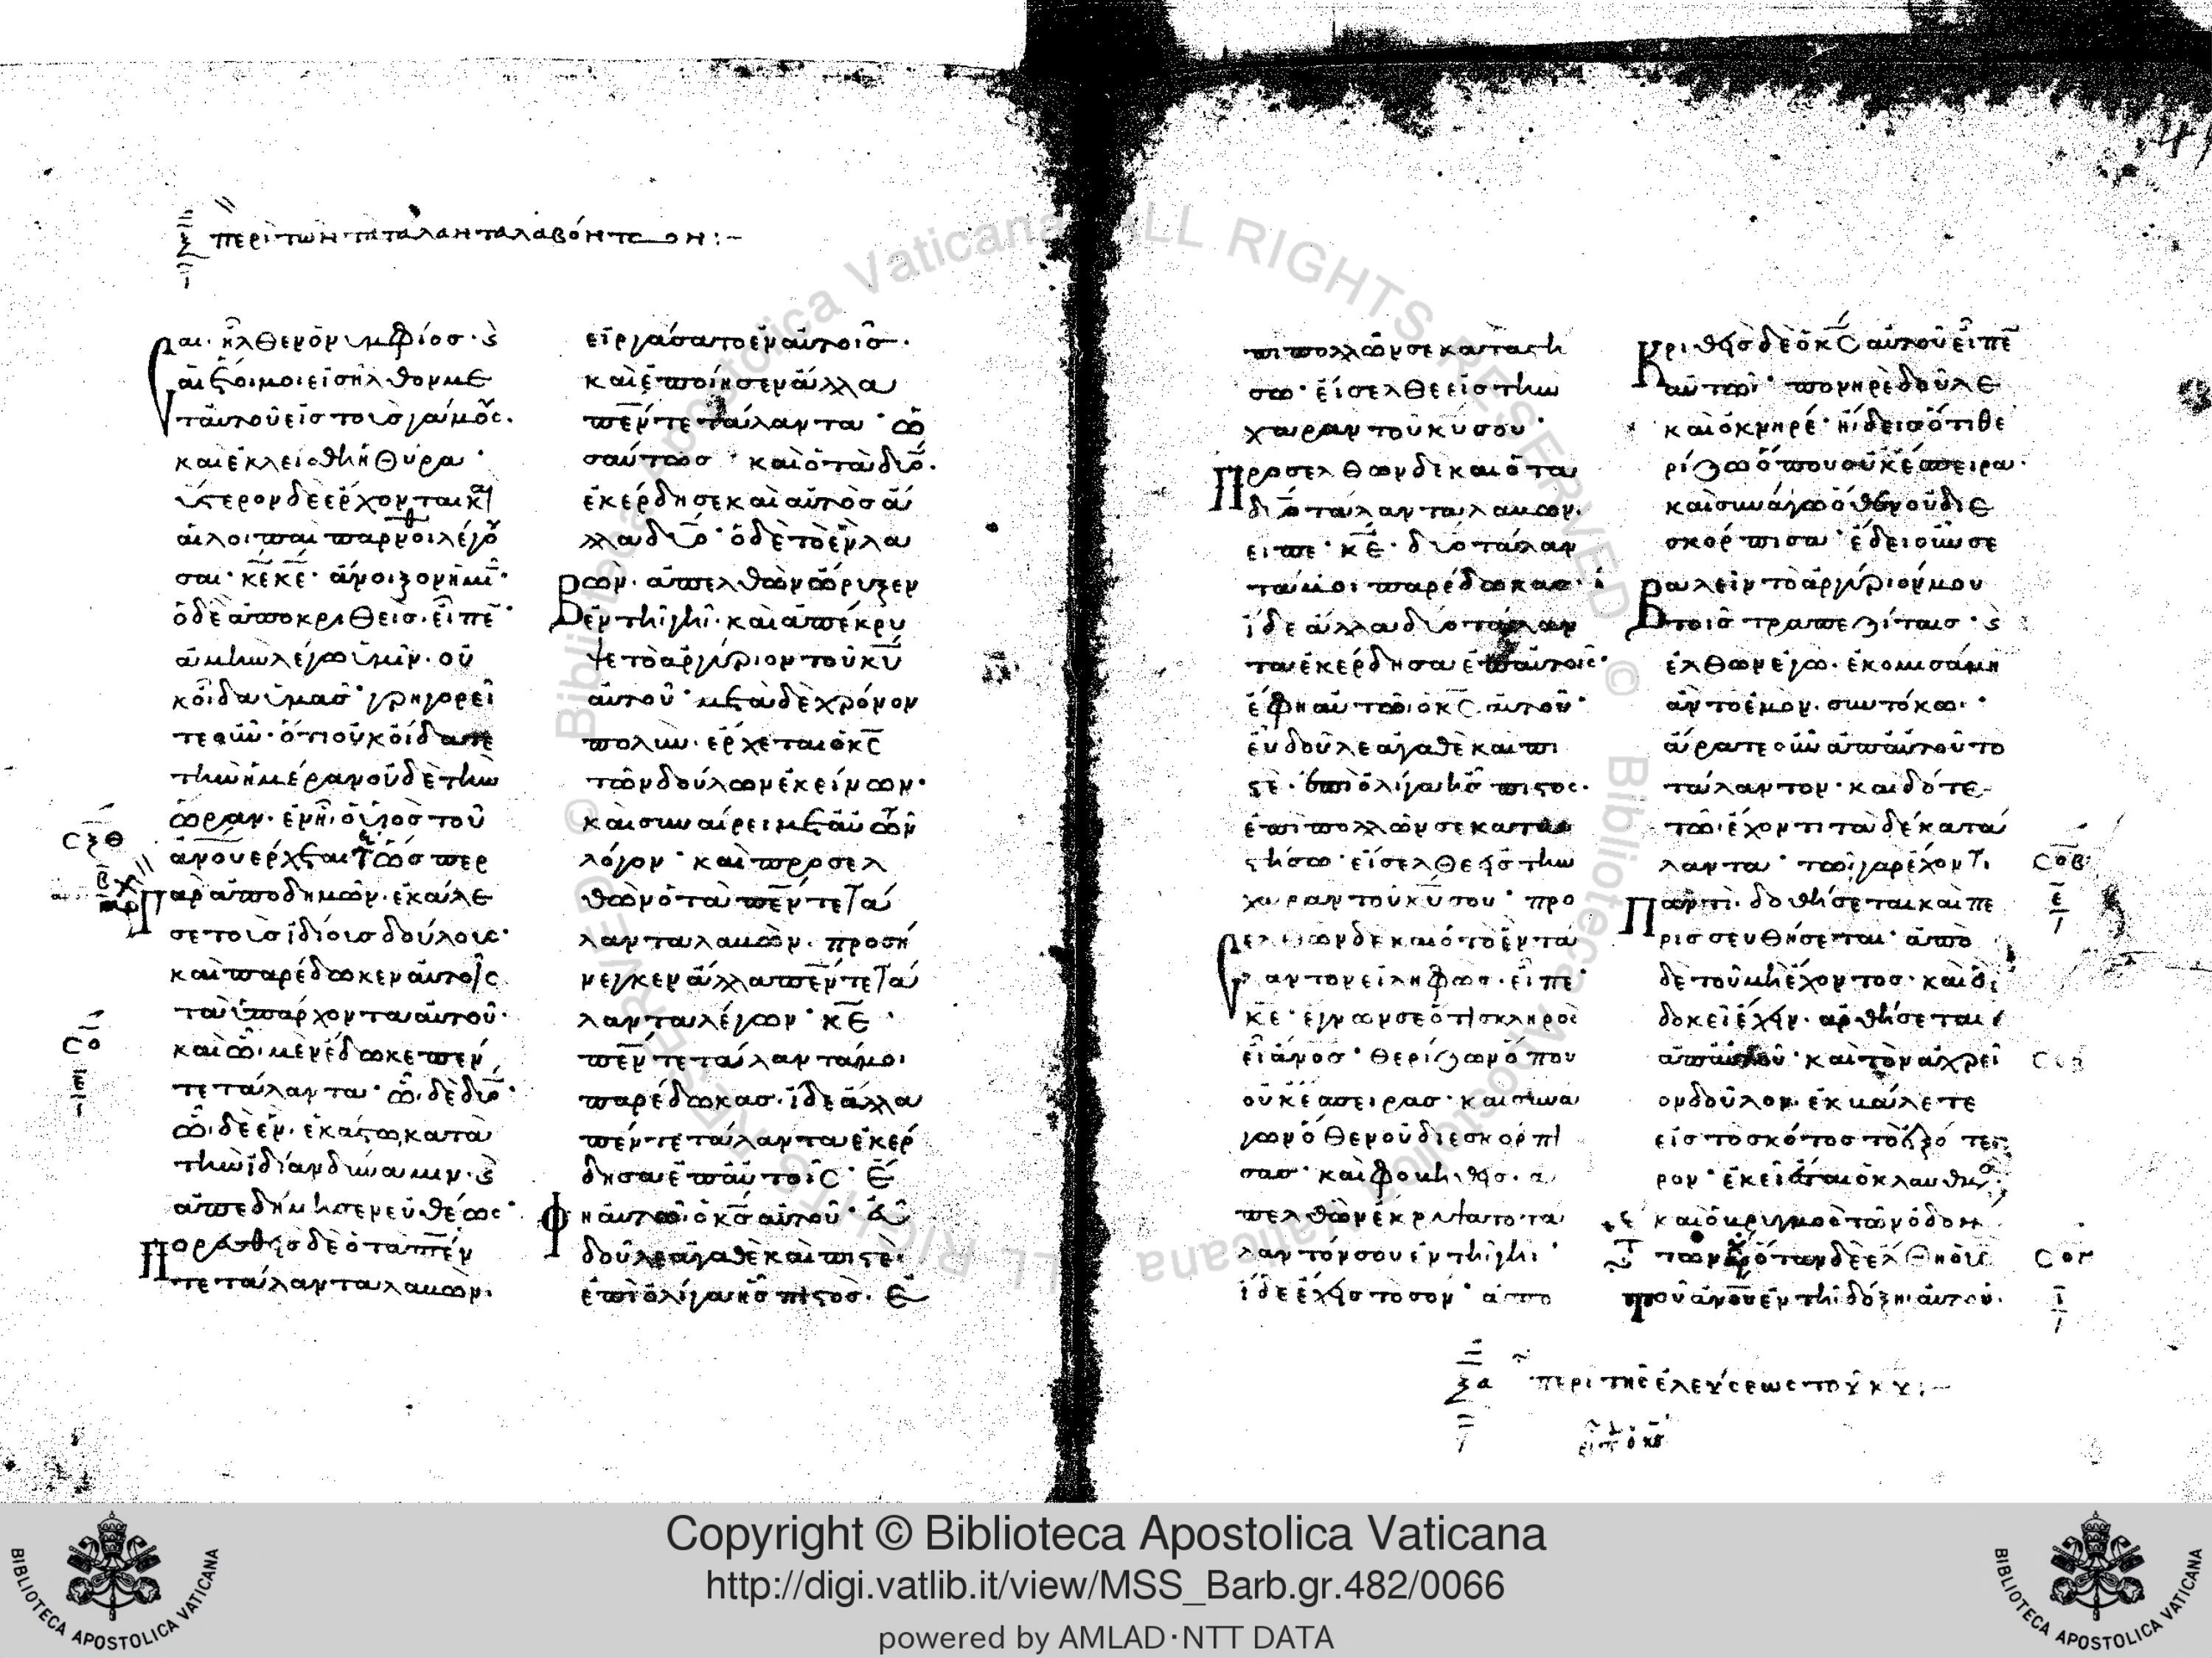 ξ περὶ τῶν τὰ τάλαντα λαβόντων :-
σαι· ἦλθεν ὁ νυμφίος· ϛ
αἱ ἕτοιμοι εἰσῆλθον με
τ αὐτοῦ εἰς τοὺς γάμους.
καὶ ἐκλείσθη ἡ θύρα·
ὕστερον δὲ ἔρχονται καὶ
αἱ λοιπαὶ παρθένοι λέγου
σαι· κε κε· ἄνοιξον ἡμῖν·
ὁ δὲ ἀποκριθεὶς· εἶπεν·
ἀμὴν λέγω ὑμῖν· οὐ
κ οἶδα ὑμᾶς· γρηγορεῖ
τε οὖν· ὅτι οὐκ οἴδατε
τὴν ἡμέραν οὐδὲ τὴν
ὥραν· ἐν ἧ ὁ υἱὸς τοῦ
ανου ἔρχεται ὥσπερ
γὰρ ἀποδημῶν· ἐκάλε
σε τοὺς ἰδίους δούλους·
καὶ παρέδωκεν αὐτοῖς
τὰ ὑπάρχοντα αὐτοῦ·
καὶ ὧ μὲν ἔδωκε πέν
τε τάλαντα· ὧ δὲ δύο·
ὧ δὲ ἕν· ἑκάστω κατὰ
τὴν ἰδίαν δύναμιν· ϛ
ἀπεδήμησεν εὐθέως·
Πορευθεὶς δὲ ὁ τὰ πέν
τε τάλαντα λαμών·
εἰργάσατο ἐν αὐτοῖς·
καὶ ἐποίησεν ἄλλα
πέντε τάλαντα· ὡ
σαύτως· καὶ ὁ τὰ δύο·
ἐκέρδησε καὶ αὐτὸς ἄ
λλα δύο· ὁ δὲ τὸ ἓν λα
βὼν· ἀπελθὼν ὤρυξεν
ἐν τῆ γῆ· καὶ ἀπέκρυ
ψε τὸ ἀργύριον τοῦ κυ
αὐτοῦ· μετὰ δὲ χρόνον
πολὺν· ἔρχεται ὁ κς
τῶν δούλων ἐκείνων·
καὶ συναίρει μετ αὐτῶν
λόγον· καὶ προσελ
θὼν ὁ τὰ πέντε τά
λαντα λαμών· προσή
νεγκεν ἄλλα πέντε τά
λαντα λέγων· κε·
πέντε τάλαντά μοι
παρέδωκας· ἴδε ἄλλα
πέντε τάλαντα ἐκέρ
δησα ἐπ αὐτοῖς· ἔ
φη αὐτῶ ὁ κς αὐτοῦ· εὖ
δοῦλε ἀγαθὲ καὶ πιστέ·
ἐπὶ ὀλίγα ἦς πιστός· ἐ
πὶ πολλῶν σε καταστή
σω· εἴσελθε εἰς τὴν
χαρὰν τοῦ κυ σου·
Προσελθὼν δὲ καὶ ὁ τὰ
δύο τάλαντα λαμών·
εἶπε· κε· δύο τάλαν
τά μοι παρέδωκας·
ἴδε ἄλλα δύο τάλαν
τα ἐκέρδησα ἐπ αὐτοῖς·
ἔφη αὐτῶ ὁ κς αὐτοῦ·
εὖ δοῦλε ἀγαθὲ καὶ πι
στέ· ἐπὶ ὀλίγα ἦς πιστός·
ἐπὶ πολλῶν σε κατα
στήσω· εἴσελθε εἰς τὴν
χαρὰν τοῦ κυ σου· προ
σελθὼν δὲ καὶ ὁ τὸ ἓν τά
λαντον εἰληφὼς· εἶπε·
κε· ἔγνων σε ὅτι σκληρὸς
εἶ ανος· θερίζων ὅπου
οὐκ ἔσπειρας· καὶ συνά
γων ὅθεν οὐ διεσκόρπι
σας· καὶ φοβηθεὶς· ἀ
πελθὼν ἔκρυψα τὸ τά
λαντόν σου ἐν τῆ γῆ·
ἴδε ἔχεις τὸ σόν· ἀπο
Κριθεὶς δὲ ὁ κς αὐτοῦ εἶπεν
αὐτῶ· πονηρὲ δοῦλε
καὶ ὀκνηρέ· ἤδεις ὅτι θε
ρίζω ὅπου οὐκ ἔσπειρα·
καὶ συνάγω ὅθεν οὐ διε
σκόρπισα· ἔδει οὖν σε
βαλεῖν τὸ ἀργύριόν μου
τοῖς τραπεζίταις· ϛ
ἐλθὼν ἐγὼ· ἐκομισάμη
ἂν τὸ ἐμὸν· σὺν τόκω·
ἄρατε οὖν ἀπ αὐτοῦ τὸ
τάλαντον· καὶ δότε
τῶ ἔχοντι τὰ δέκα τά
λαντα· τῶ γὰρ ἔχοντι
Παντὶ· δοθήσεται καὶ πε
ρισσευθήσεται· ἀπὸ
δὲ τοῦ μὴ ἔχοντος· καὶ ὃ
δοκεῖ ἔχειν· ἀρθήσεται
ἀπ αὐτοῦ· καὶ τὸν ἀχρεῖ
ον δοῦλον· ἐκβάλετε
εἰς τὸ σκότος τὸ ἐξώτε
ρον· ἐκεῖ ἔσται ὁ κλαυθμὸς
καὶ ὁ βρυγμὸς τῶν ὀδόν
των ὅταν δὲ ἔλθη ὁ υς
τοῦ ανου ἐν τῆ δόξη αὐτοῦ·
ξα περὶ τῆς ἐλεύσεως τοῦ κυ :-
εἶπ ὁ κς
cξθ
cο
cοβ
cογ
Copyright © Biblioteca Apostolica Vaticana
http://digi.vatlib.it/view/MSS_Barb.gr.482/0066
powered by AMLAD·NTT DATA
BIBLIOTECA APOSTOLICA VATICANA
BIBLIOTECA APOSTOLICA VATICANA